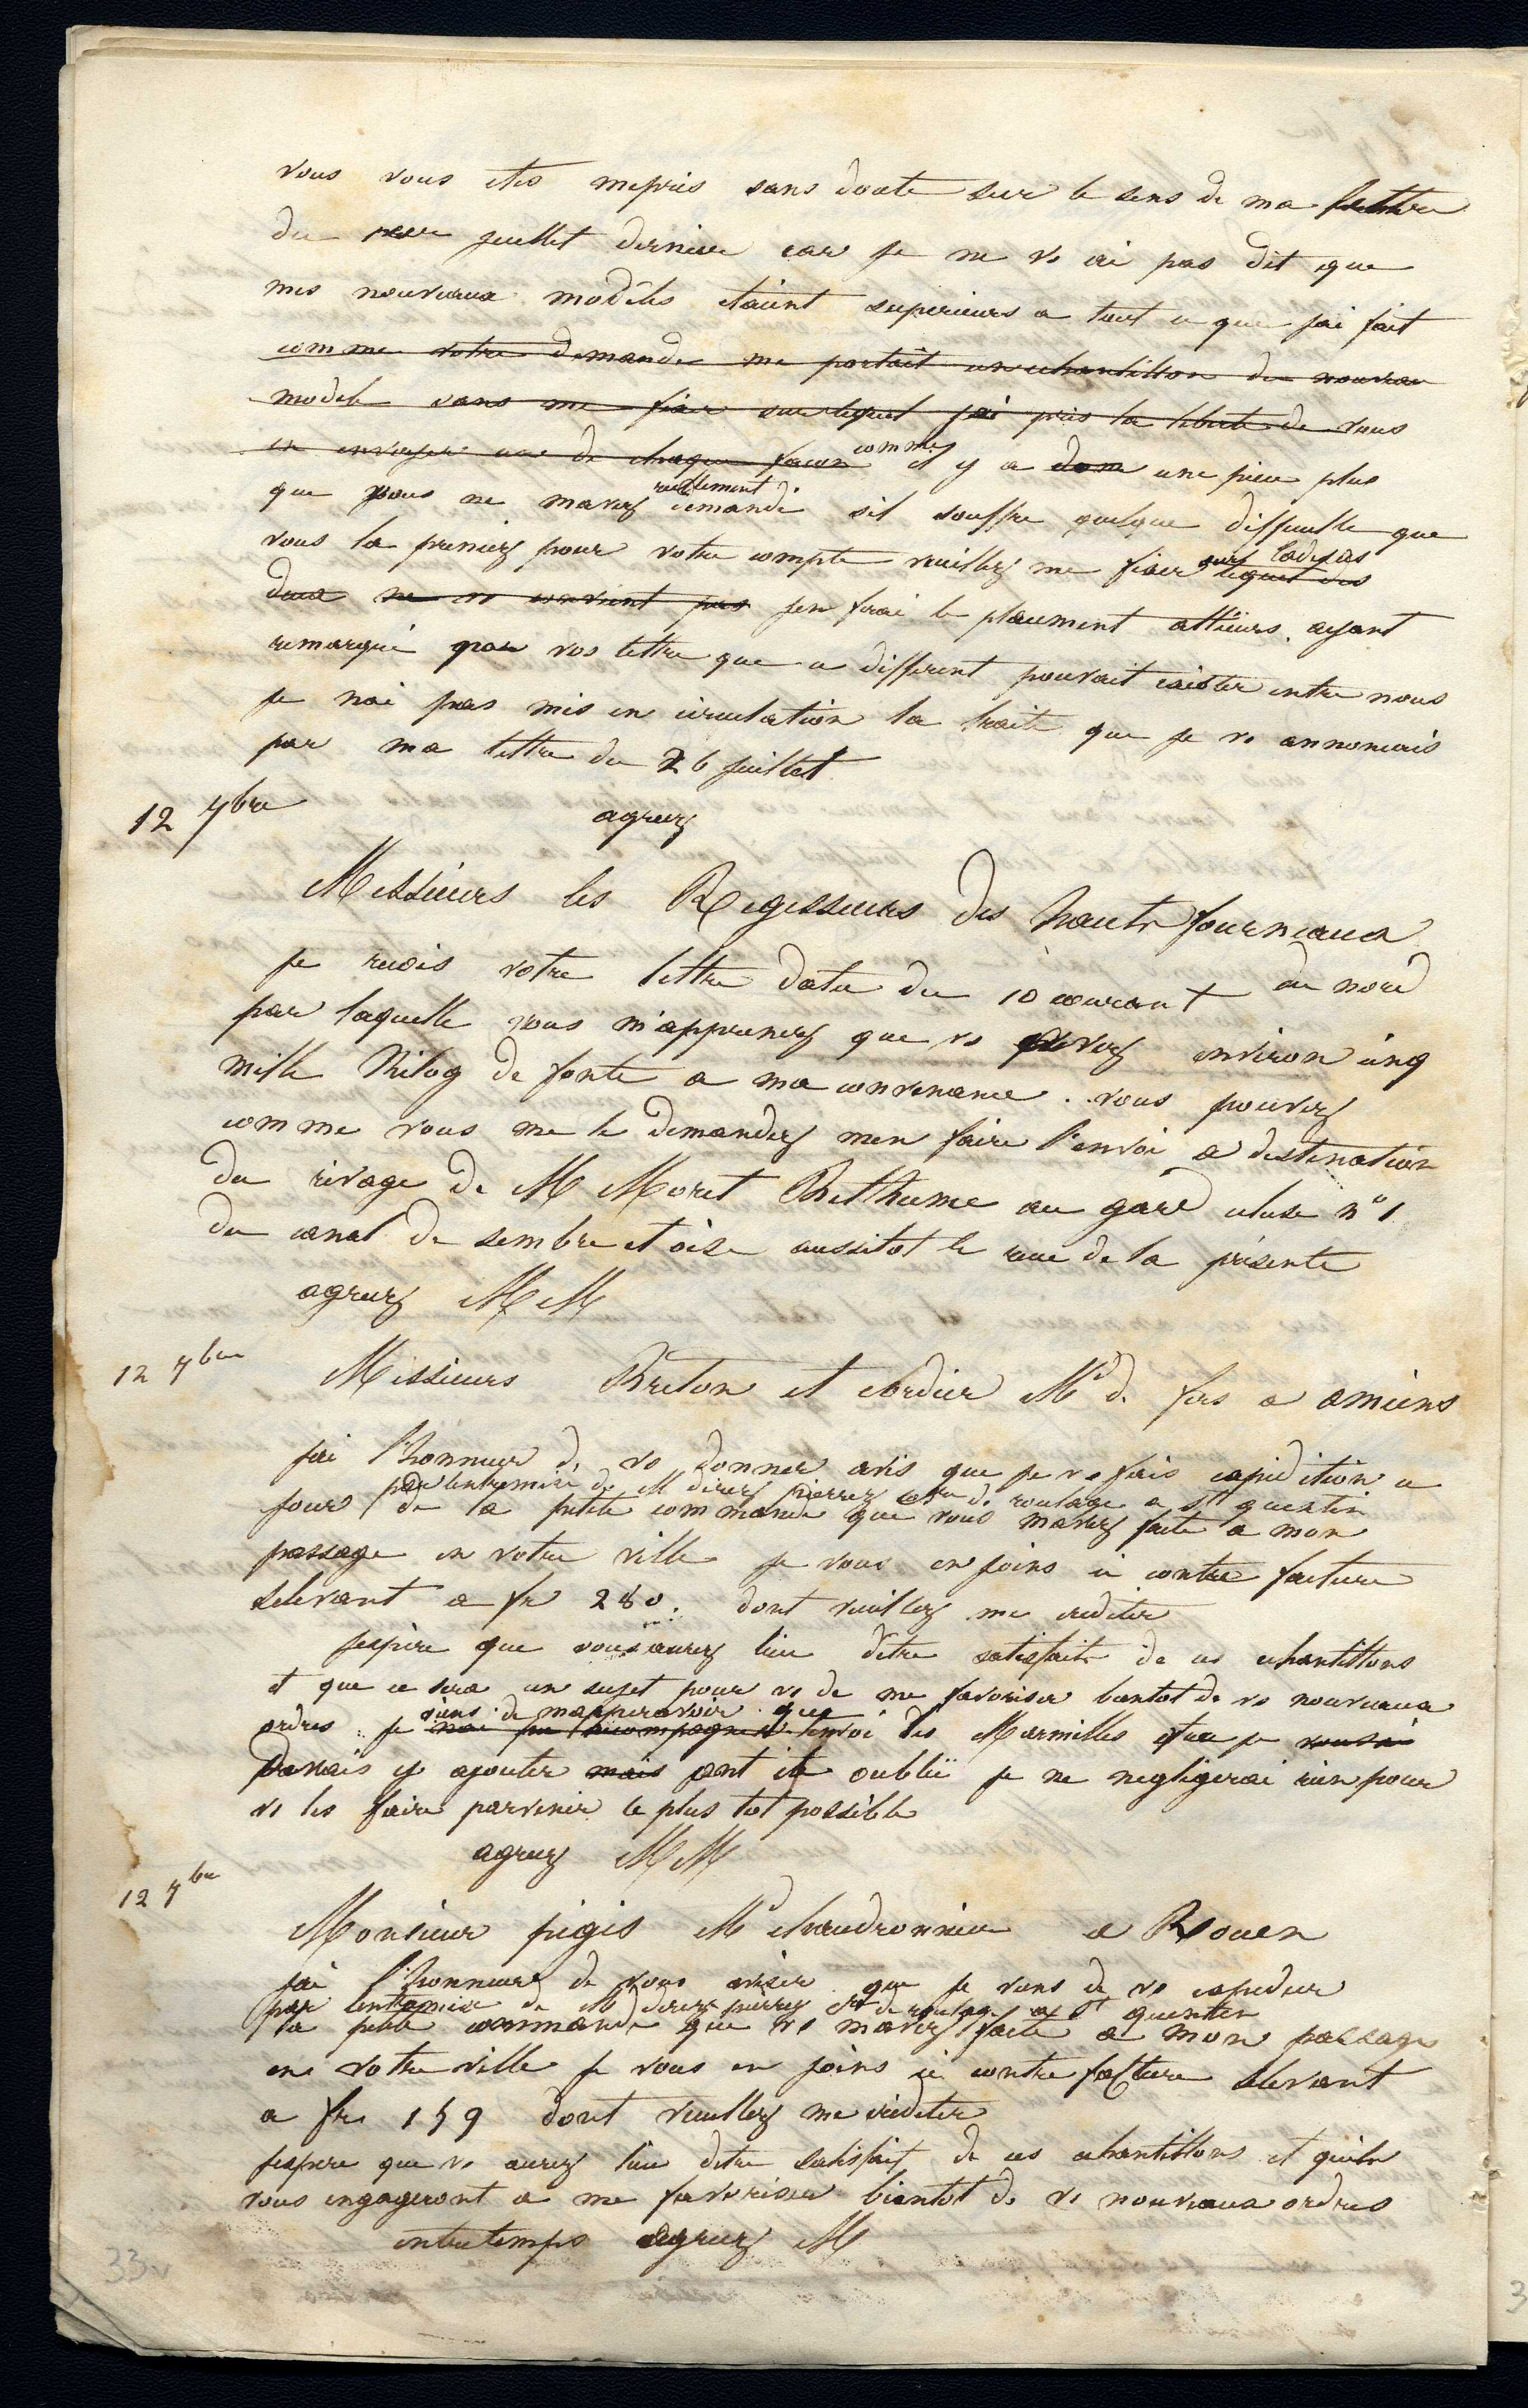 vous vous etes mepris sans doute sur le sens de ma lettre
du juillet dernier car je ne vs ai pas dit que
mes nouveaux modèles etaient superieurs a tout ce que jai fait
comme votre demande me portait un echantillon du nouveau
modele sans me fixer sur lequel jai pris la liberté de vous
en envoyer une de chaque facon comme il y a dom une piece plus
que vous ne mavez reellement demandé sil souffre quelque difficulté que
vous la preniez pour votre compte veuillez me fixer lequel des
deux ne vs convient pas jen ferai le placement allieurs. ayant
remarqué par vos lettre que ce different pouvait exister entre nous
je nai pas mis en circulation la traite que je vs annoncais
par ma lettre du 26 juillet
12 7bre agreez
Messieurs les Regisseurs des hauts fourneaux
du nord
je recois votre lettre datée du 10 courant
par laquelle vous m'apprenez que vs avez environ cinq
mille Kilog de fonte a ma convenance. vous pouvez
comme vous me le demandez men faire l'envoi a destination
du rivage de M Moret Bethume au gard ecluse n° 1
du canal de sembre et oise aussitot le recue de la présente
agreez MM
12 7bre Messieurs Breton et Cordier Md de fers a amiens
jai l'honneur de vs donner avis que je vs fais expedition ce
par lentremise de M direz pierrez Cre de roulage a st quentin
jour de la petite commande que vous mavez faite a mon
passage en votre ville je vous en joins ci contre facture
selevant a fr 280. dont veuillez me crediter
jespère que vous aurez lieu detre satisfaits de ces echantillons
et que ce sera un sujet pour vs de me favoriser bientot de vs nouveaux
viens de mappercevoir que
ordres je nai pu accompagner lenvoi des Marmilles que je vous ai
devais y ajouter mais ont ete oublié je ne negligerai rien pour
vs les faire parvenir le plus tot possible
agreez MM
12 7bre
Monsieur pigis Md chaudronnier a Rouen
jai l'honneur de vous aviser que je viens de vs expedier
par lentremise de M direz pierrez Cre de roulage a St quentin
la petite commande que vs mavez faite a mon passage
en votre ville je vous en joins ci contre facture selevant
a frs 159 dont veuillez me crediter
jespere que vs aurez lieu detre satisfait de ces echantillons et quils
vous engageront a me favoriser bientot de vs nouveaux ordres
entretemps agreez M
33v